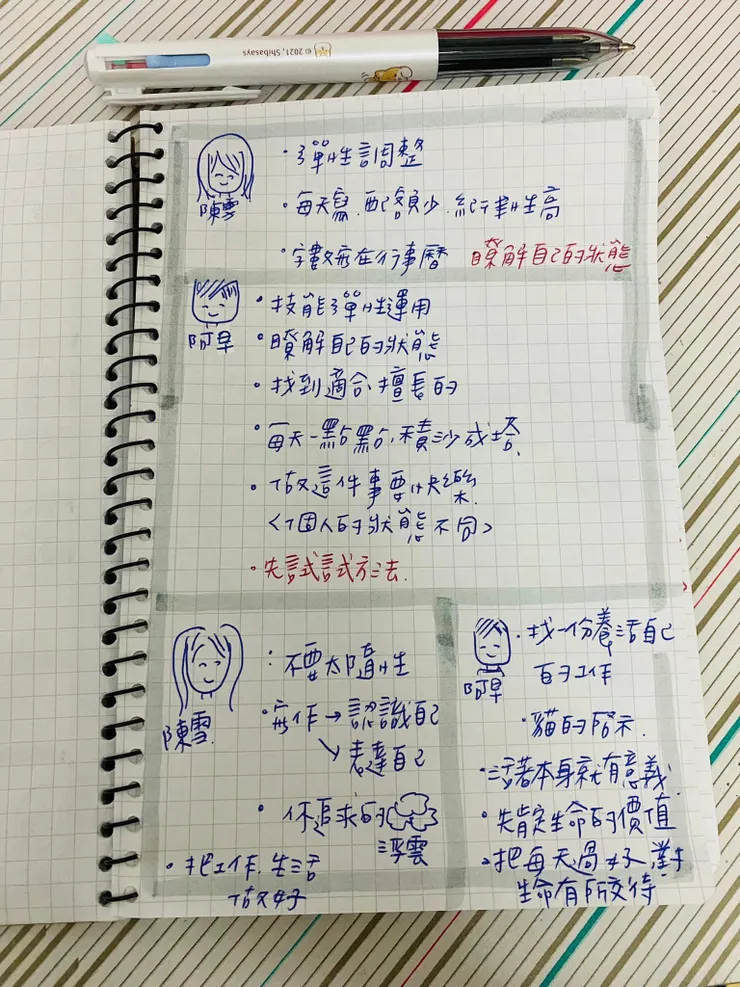 © 2021, Shibasays
陳雪
・彈性調整
・每天寫.配額少.紀律性高
・字數寫在行事曆 瞭解自己的狀態
阿早
・技能彈性運用
・瞭解自己的狀態
・找到適合.擅長的
・每天一點點.積沙成塔.
・做這件事要快樂.
<個人的狀態不同>
・先試試方法.
陳雪
：不要太隨性
・寫作→認識自己
↘表達自己
・你追求的
浮雲
・把工作.生活
做好
阿早
・找一份養活自己
的工作
・貓的啟示.
・活著本身就有意義.
・先肯定生命的價值
・把每天過好.對
生命有所交待